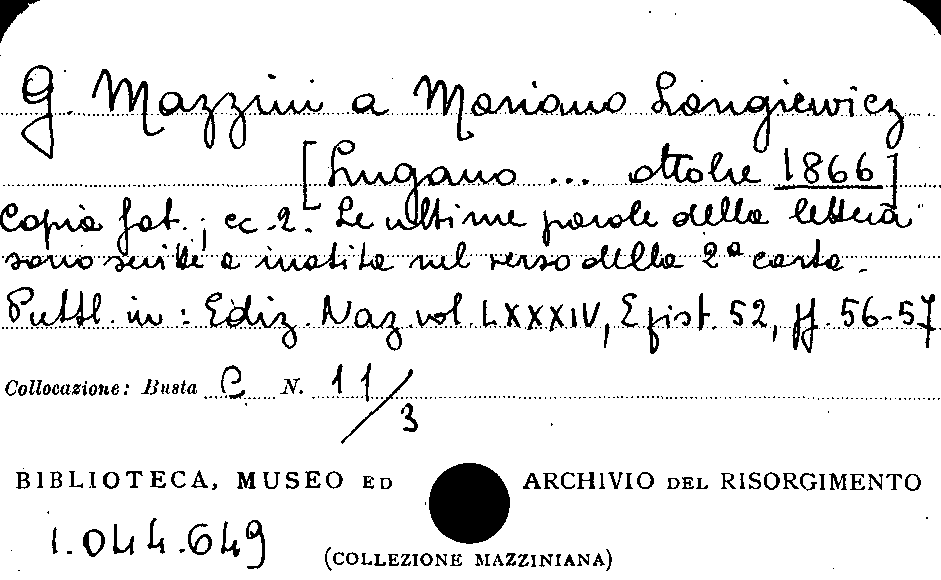 G. Mazzini a Mariano Langiewicz
[Lugano ... ottobre 1866]
Copia fot.; cc. 2. Le ultime parole della lettera
sono scritte a matita nel verso della 2ª carta.
Pubbl. in: Ediz. Naz. vol. LXXXIV, Epist. 52, pp. 56-57
Collocazione: Busta C N. 11/3
BIBLIOTECA, MUSEO ED ARCHIVIO DEL RISORGIMENTO
1.044.649
(COLLEZIONE MAZZINIANA)